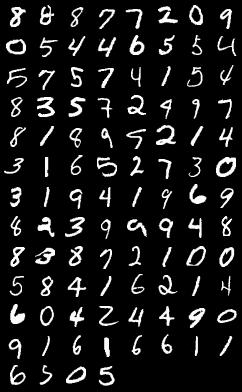 8 8 8 7 7 2 0 9
0 5 4 4 6 5 5 4
5 7 5 7 4 1 5 4
8 3 5 7 2 9 9 7
8 1 8 9 5 2 1 4
3 1 6 5 2 7 3 0
3 1 9 4 1 9 6 9
8 2 3 9 9 9 4 8
8 3 8 7 2 1 0 0
5 8 4 1 6 2 1 4
6 0 4 2 4 4 9 0
9 1 6 1 6 6 1 1
6 5 0 5